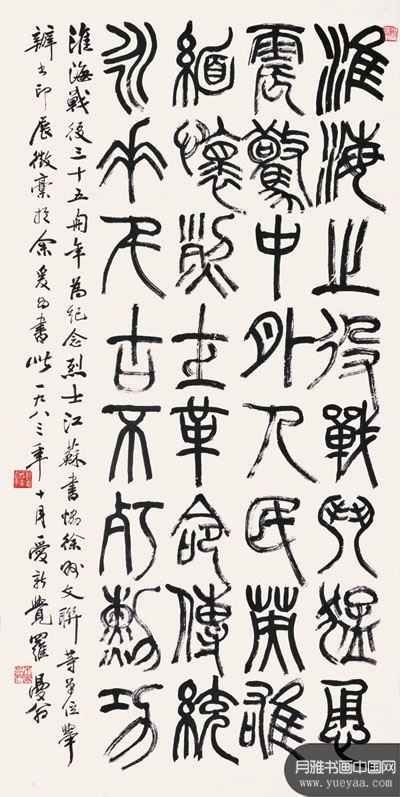 淮海之役戰鬥猛恿
震驚中外人民英雄
緬懷烈士革命傳統
永垂千古不朽勳功
淮海戰後三十五周年為紀念烈士江蘇書協徐州文聯等單位舉
辦書印展徵稾於余爰為書此一九八三年十月愛新覺羅曼翁
月雅书画中国网
www.yueyaa.com